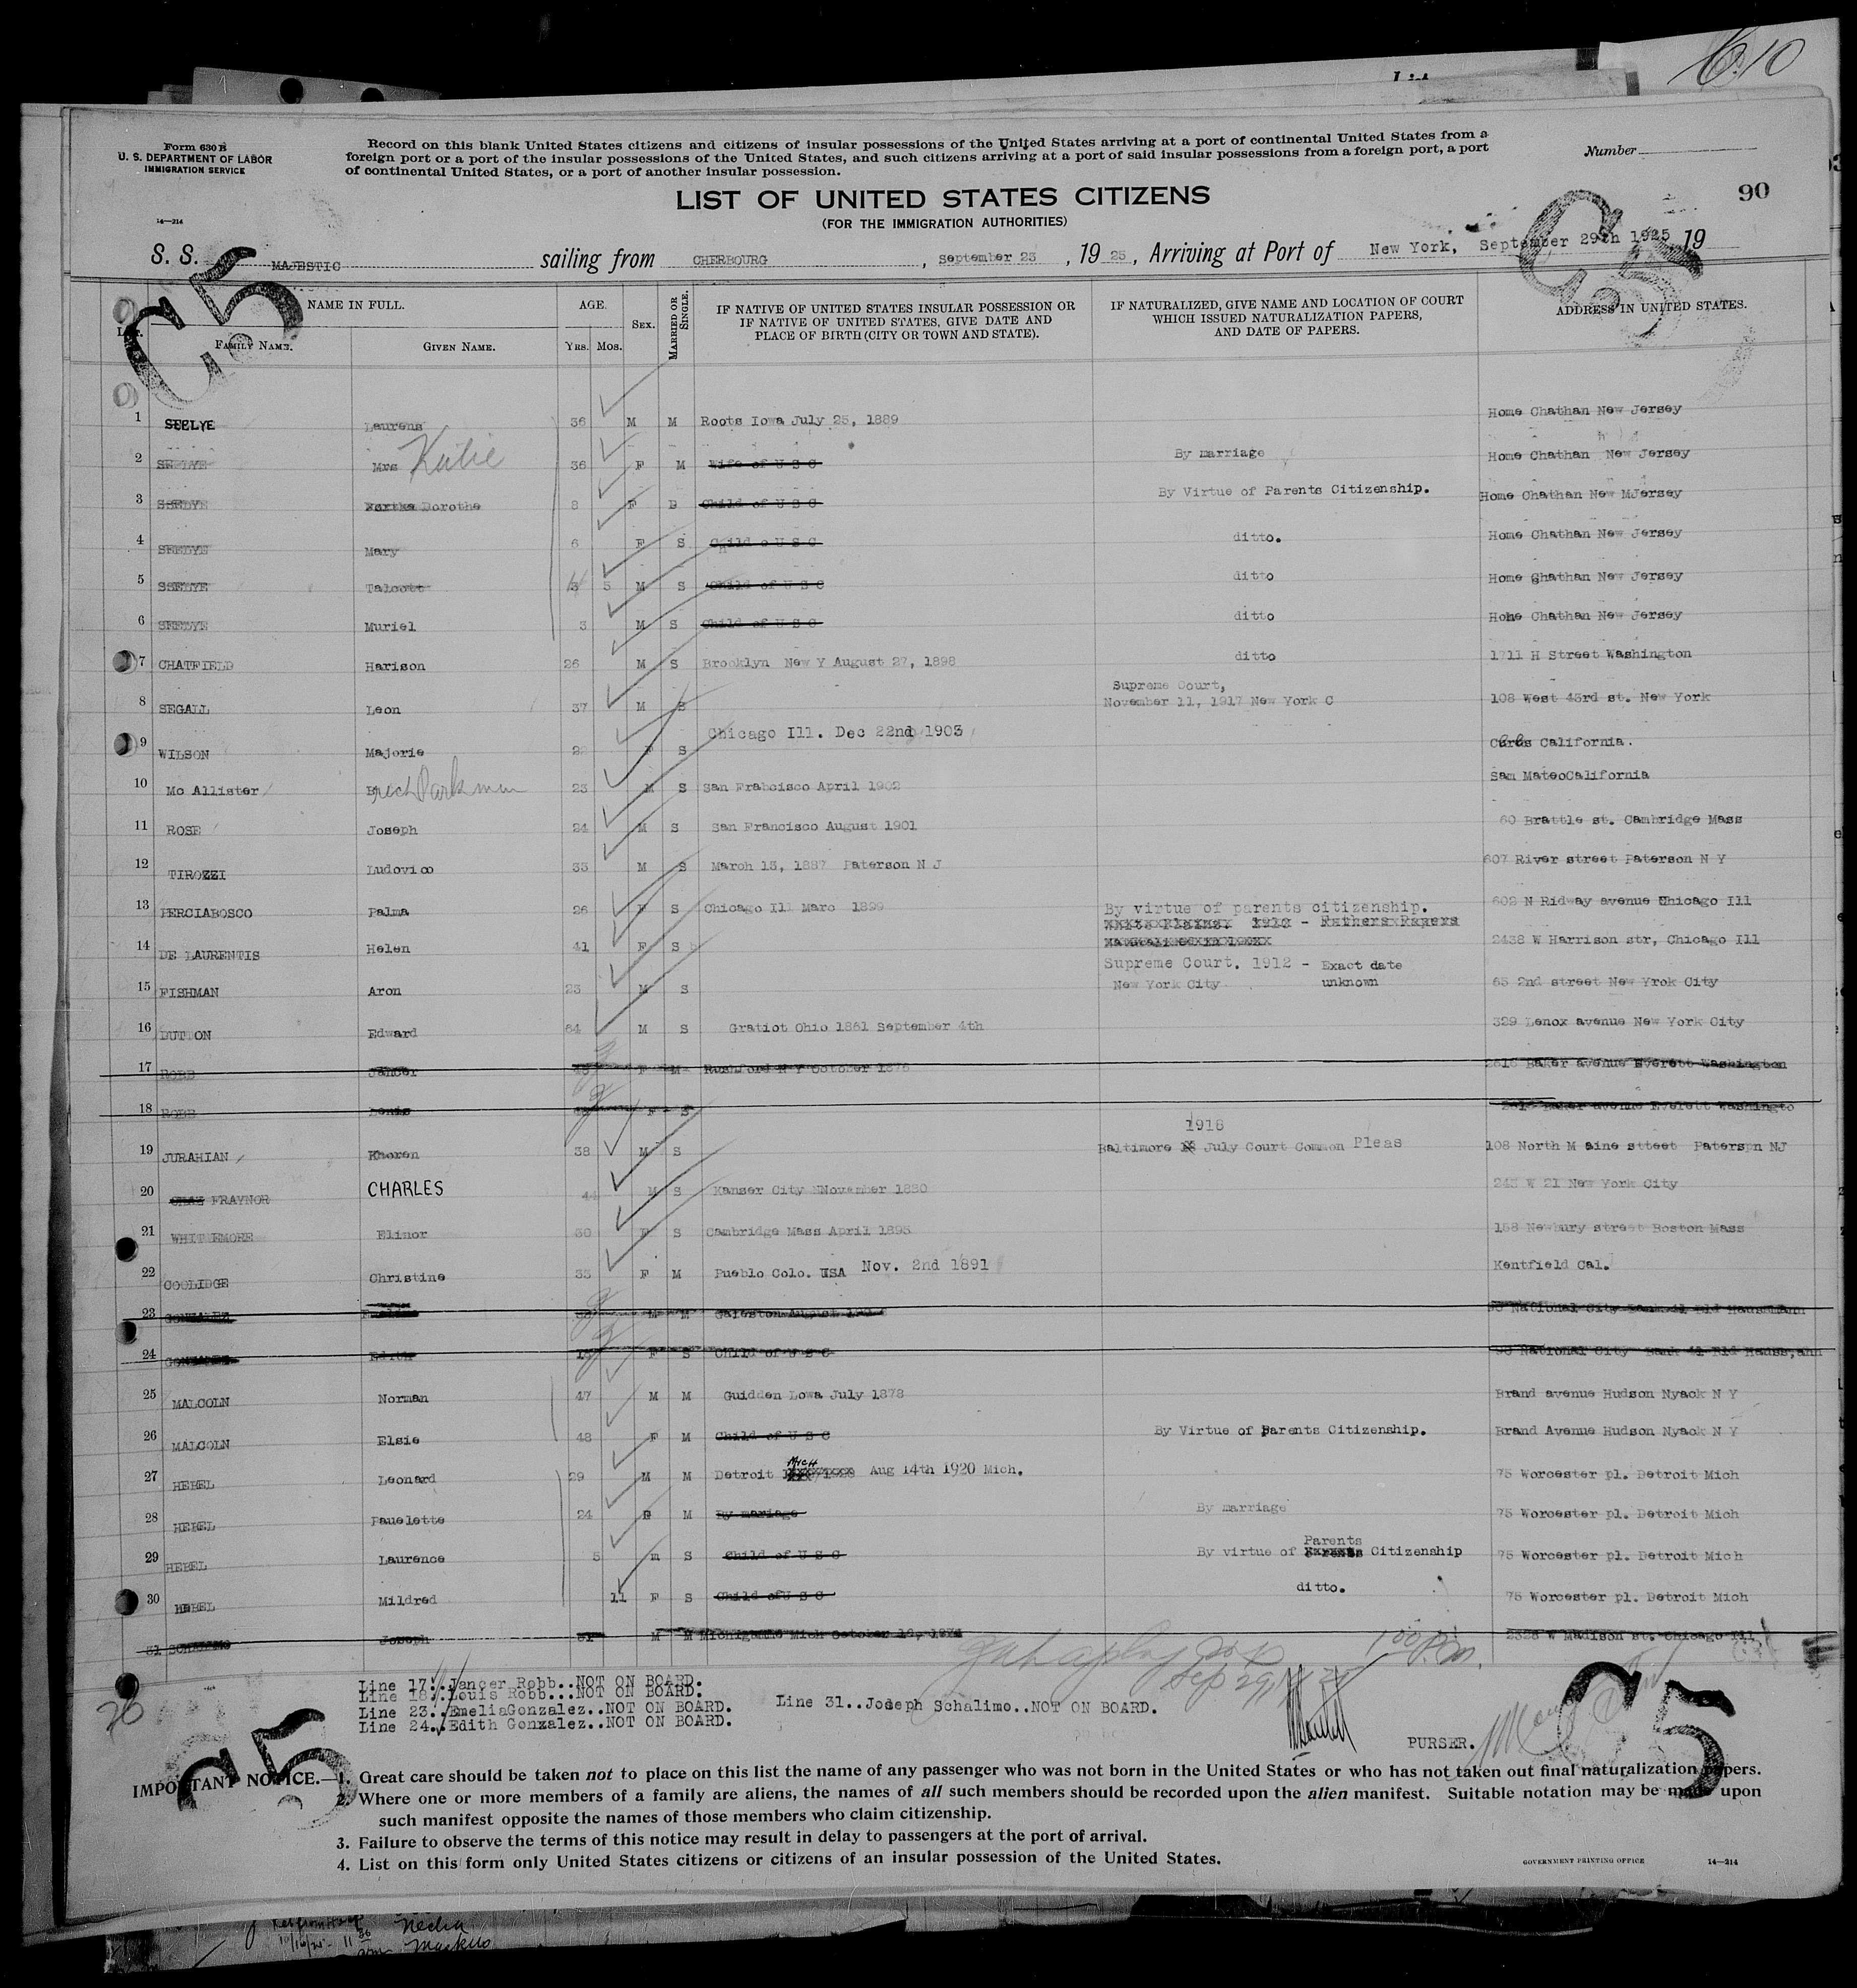 6.10
List
Form 630 B
U. S. DEPARTMENT OF LABOR
IMMIGRATION SERVICE
14—214
Record on this blank United States citizens and citizens of insular possessions of the United States arriving at a port of continental United States from a
foreign port or a port of the insular possessions of the United States, and such citizens arriving at a port of said insular possessions from a foreign port, a port
of continental United States, or a port of another insular possession.
Number
90
LIST OF UNITED STATES CITIZENS
(FOR THE IMMIGRATION AUTHORITIES)
S. S. MAJESTIC sailing from CHERBOURG, September 23, 19 25, Arriving at Port of New York, September 29th 1925 19
C5 C5
NAME IN FULL. AGE. SEX. MARRIED OR SINGLE. IF NATIVE OF UNITED STATES INSULAR POSSESSION OR IF NATIVE OF UNITED STATES, GIVE DATE AND PLACE OF BIRTH (CITY OR TOWN AND STATE). IF NATURALIZED, GIVE NAME AND LOCATION OF COURT WHICH ISSUED NATURALIZATION PAPERS, AND DATE OF PAPERS. ADDRESS IN UNITED STATES.
FAMILY NAME. GIVEN NAME. YRS. MOS.
1 SEELYE Laurens 36 M M Roots Iowa July 25, 1889 Home Chathan New Jersey
2 SEELYE Mrs Katie 36 F M Wife of U S C By marriage Home Chathan New Jersey
3 SSELYE Dorothe 8 F Child of U S C By Virtue of Parents Citizenship. Home Chathan New MJersey
4 SEELYE Mary 6 F S Child o U S C ditto. Home Chathan New Jersey
5 SSELYE Talcott 3 5 M S Child of U S C ditto Home Ghathan New Jersey
6 SEELYE Muriel 3 M S Child of U S C ditto Home Chathan New Jersey
7 CHATFIELD Harison 26 M S Brooklyn New Y August 27, 1898 ditto 1711 H Street Washington
8 SEGALL Leon 37 M S Supreme Court, November 11, 1917 New York C 108 West 43rd st. New York
9 WILSON Majorie 22 F S Chicago Ill. Dec 22nd 1903 California.
10 Mc Allister Parkman 23 M S San Frabcisco April 1902 San MateoCalifornia
11 ROSE Joseph 24 M S San Francisco August 1901 60 Brattle st. Cambridge Mass
12 TIROZZI Ludovico 33 M S March 13, 1887 Paterson N J 607 River street Paterson N Y
13 PERCIABOSCO Palma 26 F S Chicago Ill Marc 1899 602 N Ridway avenue Chicago Ill
14 DE LAURENTIS Helen 41 F S By virtue of parents citizenship. 1912 - Fathers Papers 2438 W Harrison str, Chicago Ill
15 FISHMAN Aron 23 M S Supreme Court. 1912 - Exact date unknown New York City 65 2nd street New Yrok City
16 DUTTON Edward 64 M S Gratiot Ohio 1861 September 4th 329 Lenox avenue New York City
17 ROBB Jancer F M Rushford N Y October 1876 2616 Baker avenue Everett Washington
18 ROBB Louis F S Baker avenue Everett Washingto
19 JURAHIAN Khoren 38 M S 1918 Baltimore July Court Common Pleas 108 North M aine stteet Paterspn NJ
20 FRAYNOR CHARLES 44 M S Kanser City NNovember 1880 245 W 21 New York City
21 WHITTEMORE Elinor 30 F S Cambridge Mass April 1895 158 Newbury street Boston Mass
22 COOLIDGE Christine 33 F M Pueblo Colo. USA Nov. 2nd 1891 Kentfield Cal.
23 GONZALEZ M M Galeston August National City Bank 41 Bld Haussmann
24 GONZALEZ Edith F S Child of U S C National City Bank 41 Bld Hauss,ann
25 MALCOLN Norman 47 M M Guidden Lowa July 1878 Brand avenue Hudson Nyack N Y
26 MALCOLN Elsie 48 F M Child of U S C By Virtue of Parents Citizenship. Brand Avenue Hudson Nyack N Y
27 HEBEL Leonard 29 M M Detroit MICH Aug 14th 1920 Mich. 75 Worcester pl. Detroit Mich
28 HEBEL Pauelette 24 M By mariage By marriage 75 Worcester pl. Detroit Mich
29 HEBEL Laurence 5 m S Child of U S C By virtue of Parents Citizenship 75 Worcester pl. Detroit Mich
30 HEBEL Mildred 11 F S Child ofU S C ditto. 75 Worcester pl. Detroit Mich
31 SCHALIMO Joseph M M Mich October 2328 W Madison st. Chicago Ill
1 00 P.M.
Sep 29, 1925
26
Line 17..Jancer Robb..NOT ON BOARD.
Line 18..Louis Robb...NOT ON BOARD.
Line 23..EmeliaGonzalez..NOT ON BOARD.
Line 24..Edith Gonxalez..NOT ON BOARD.
Line 31..Joseph Schalimo..NOT ON BOARD.
PURSER.
C5 C5
IMPORTANT NOTICE.—1. Great care should be taken not to place on this list the name of any passenger who was not born in the United States or who has not taken out final naturalization papers.
2. Where one or more members of a family are aliens, the names of all such members should be recorded upon the alien manifest. Suitable notation may be made upon
such manifest opposite the names of those members who claim citizenship.
3. Failure to observe the terms of this notice may result in delay to passengers at the port of arrival.
4. List on this form only United States citizens or citizens of an insular possession of the United States.
GOVERNMENT PRINTING OFFICE 14—214
Necha
Markus